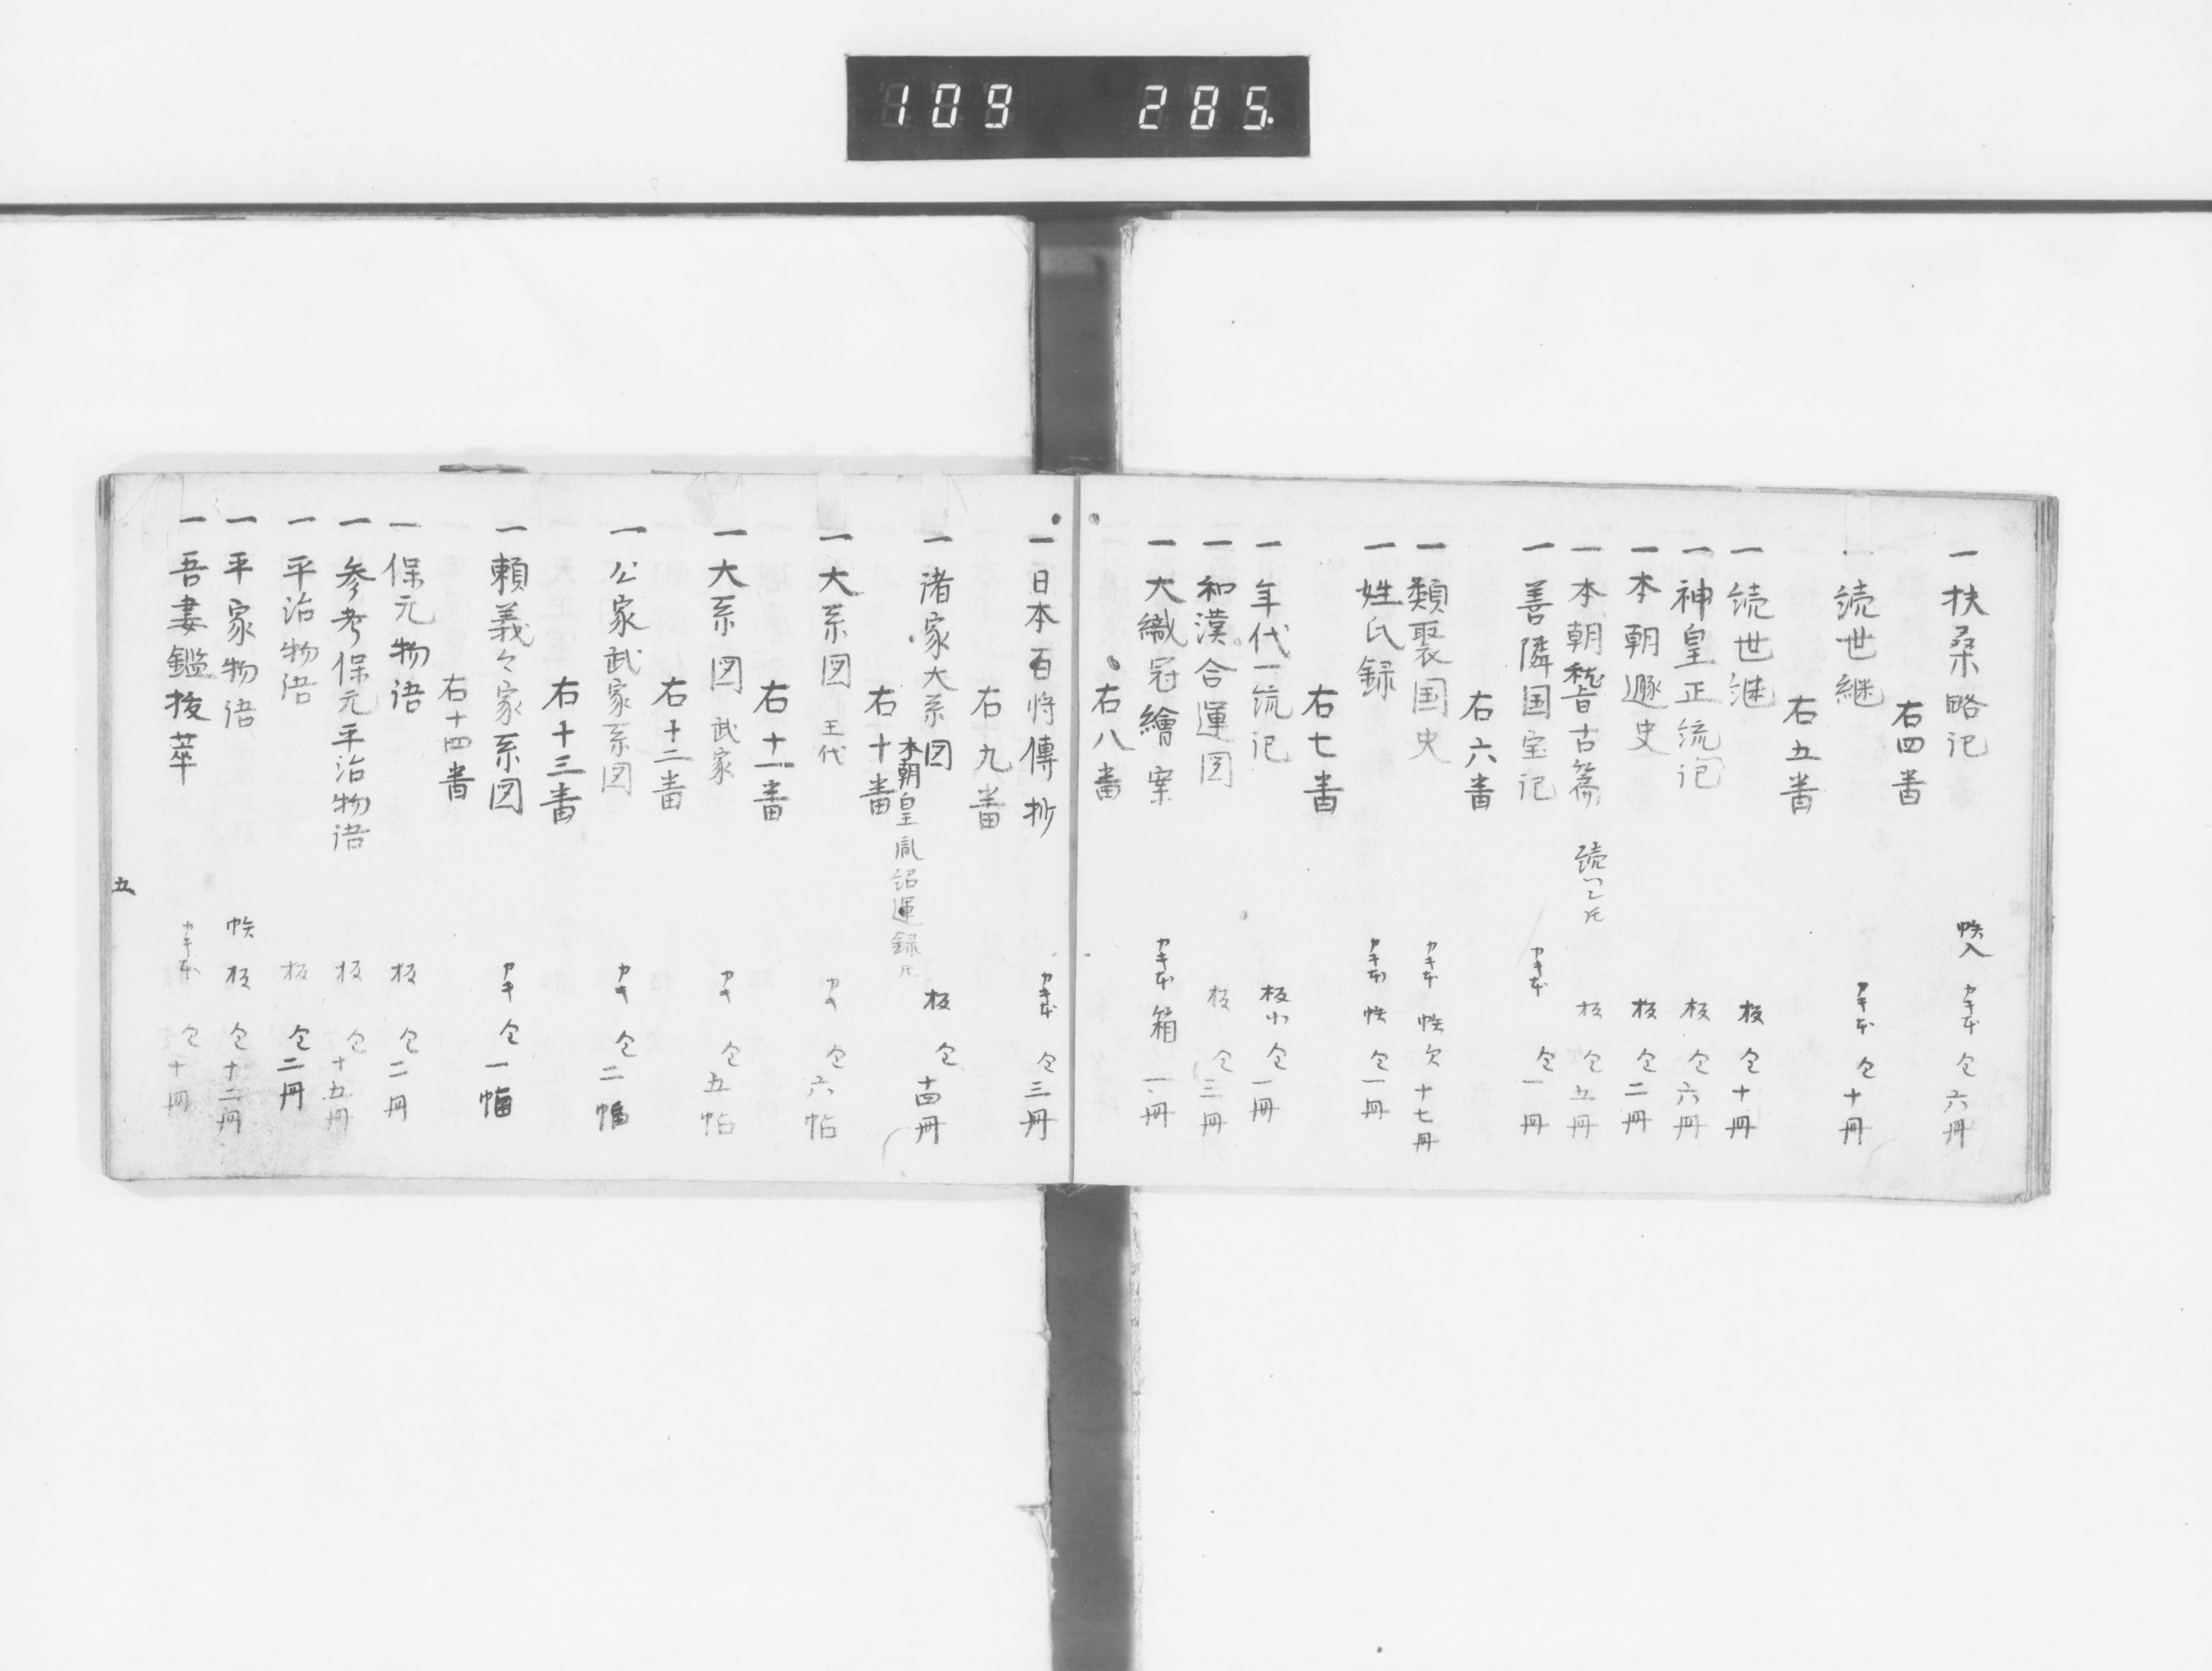 109 285.
一扶桑略記 帙入 カキ本 仝六冊
右四番
一続世継 カキ本 仝十冊
右五番
一続世継 板 仝十冊
一神皇正統記 板 仝六冊
一本朝遯史 板 仝二冊
一本朝稽古篇 板 仝五冊
一善隣国宝記 カキ本 仝一冊
右六番
一類聚国史 カキ本 帙 欠 十七冊
一姓氏録 カキ本 帙 仝一冊
右七番
一年代一流記 板小 仝一冊
一和漢合運図 板 仝三冊
一大織冠繪案 カキ本 箱 一冊
右八番
一日本百将傳抄 カキ本 仝三冊
右九番
一諸家大系図 板 仝十四冊
本朝皇胤紹運録 
右十番
一大系図 王代 カキ 仝六帖
右十一番
一大系図 武家 カキ 仝五帖
右十二番
一公家武家系図 カキ 仝二幅
右十三番
一頼義々家系図 カキ 仝一幅
右十四番
一保元物语 板 仝二冊
一参考保元平治物语 板 仝十五冊
一平治物语 板 仝二冊
一平家物语 帙 板 仝十二冊
一吾妻鑑抜萃 カキ本 仝十冊
五